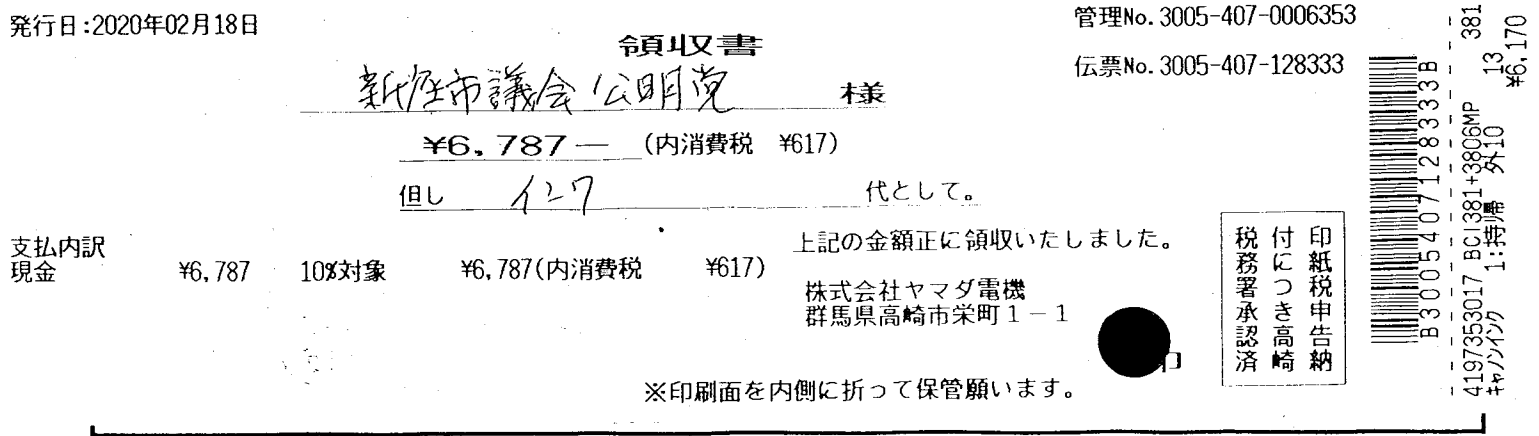 発行日:2020年02月18日
管理No.3005-407-0006353
領収書
伝票No.3005-407-128333
新座市議会公明党 様
¥6,787― (内消費税 ¥617)
但し インク 代として。
支払内訳
現金 ¥6,787 10%対象 ¥6,787(内消費税 ¥617)
上記の金額正に領収いたしました。
株式会社ヤマダ電機
群馬県高崎市栄町1-1
印紙税申告納
付につき高崎
税務署承認済
※印刷面を内側に折って保管願います。
B3005407128333B
4197353017 BCI381+3806MP 13 381
キャノンインク 1:持帰 外10 ¥6,170